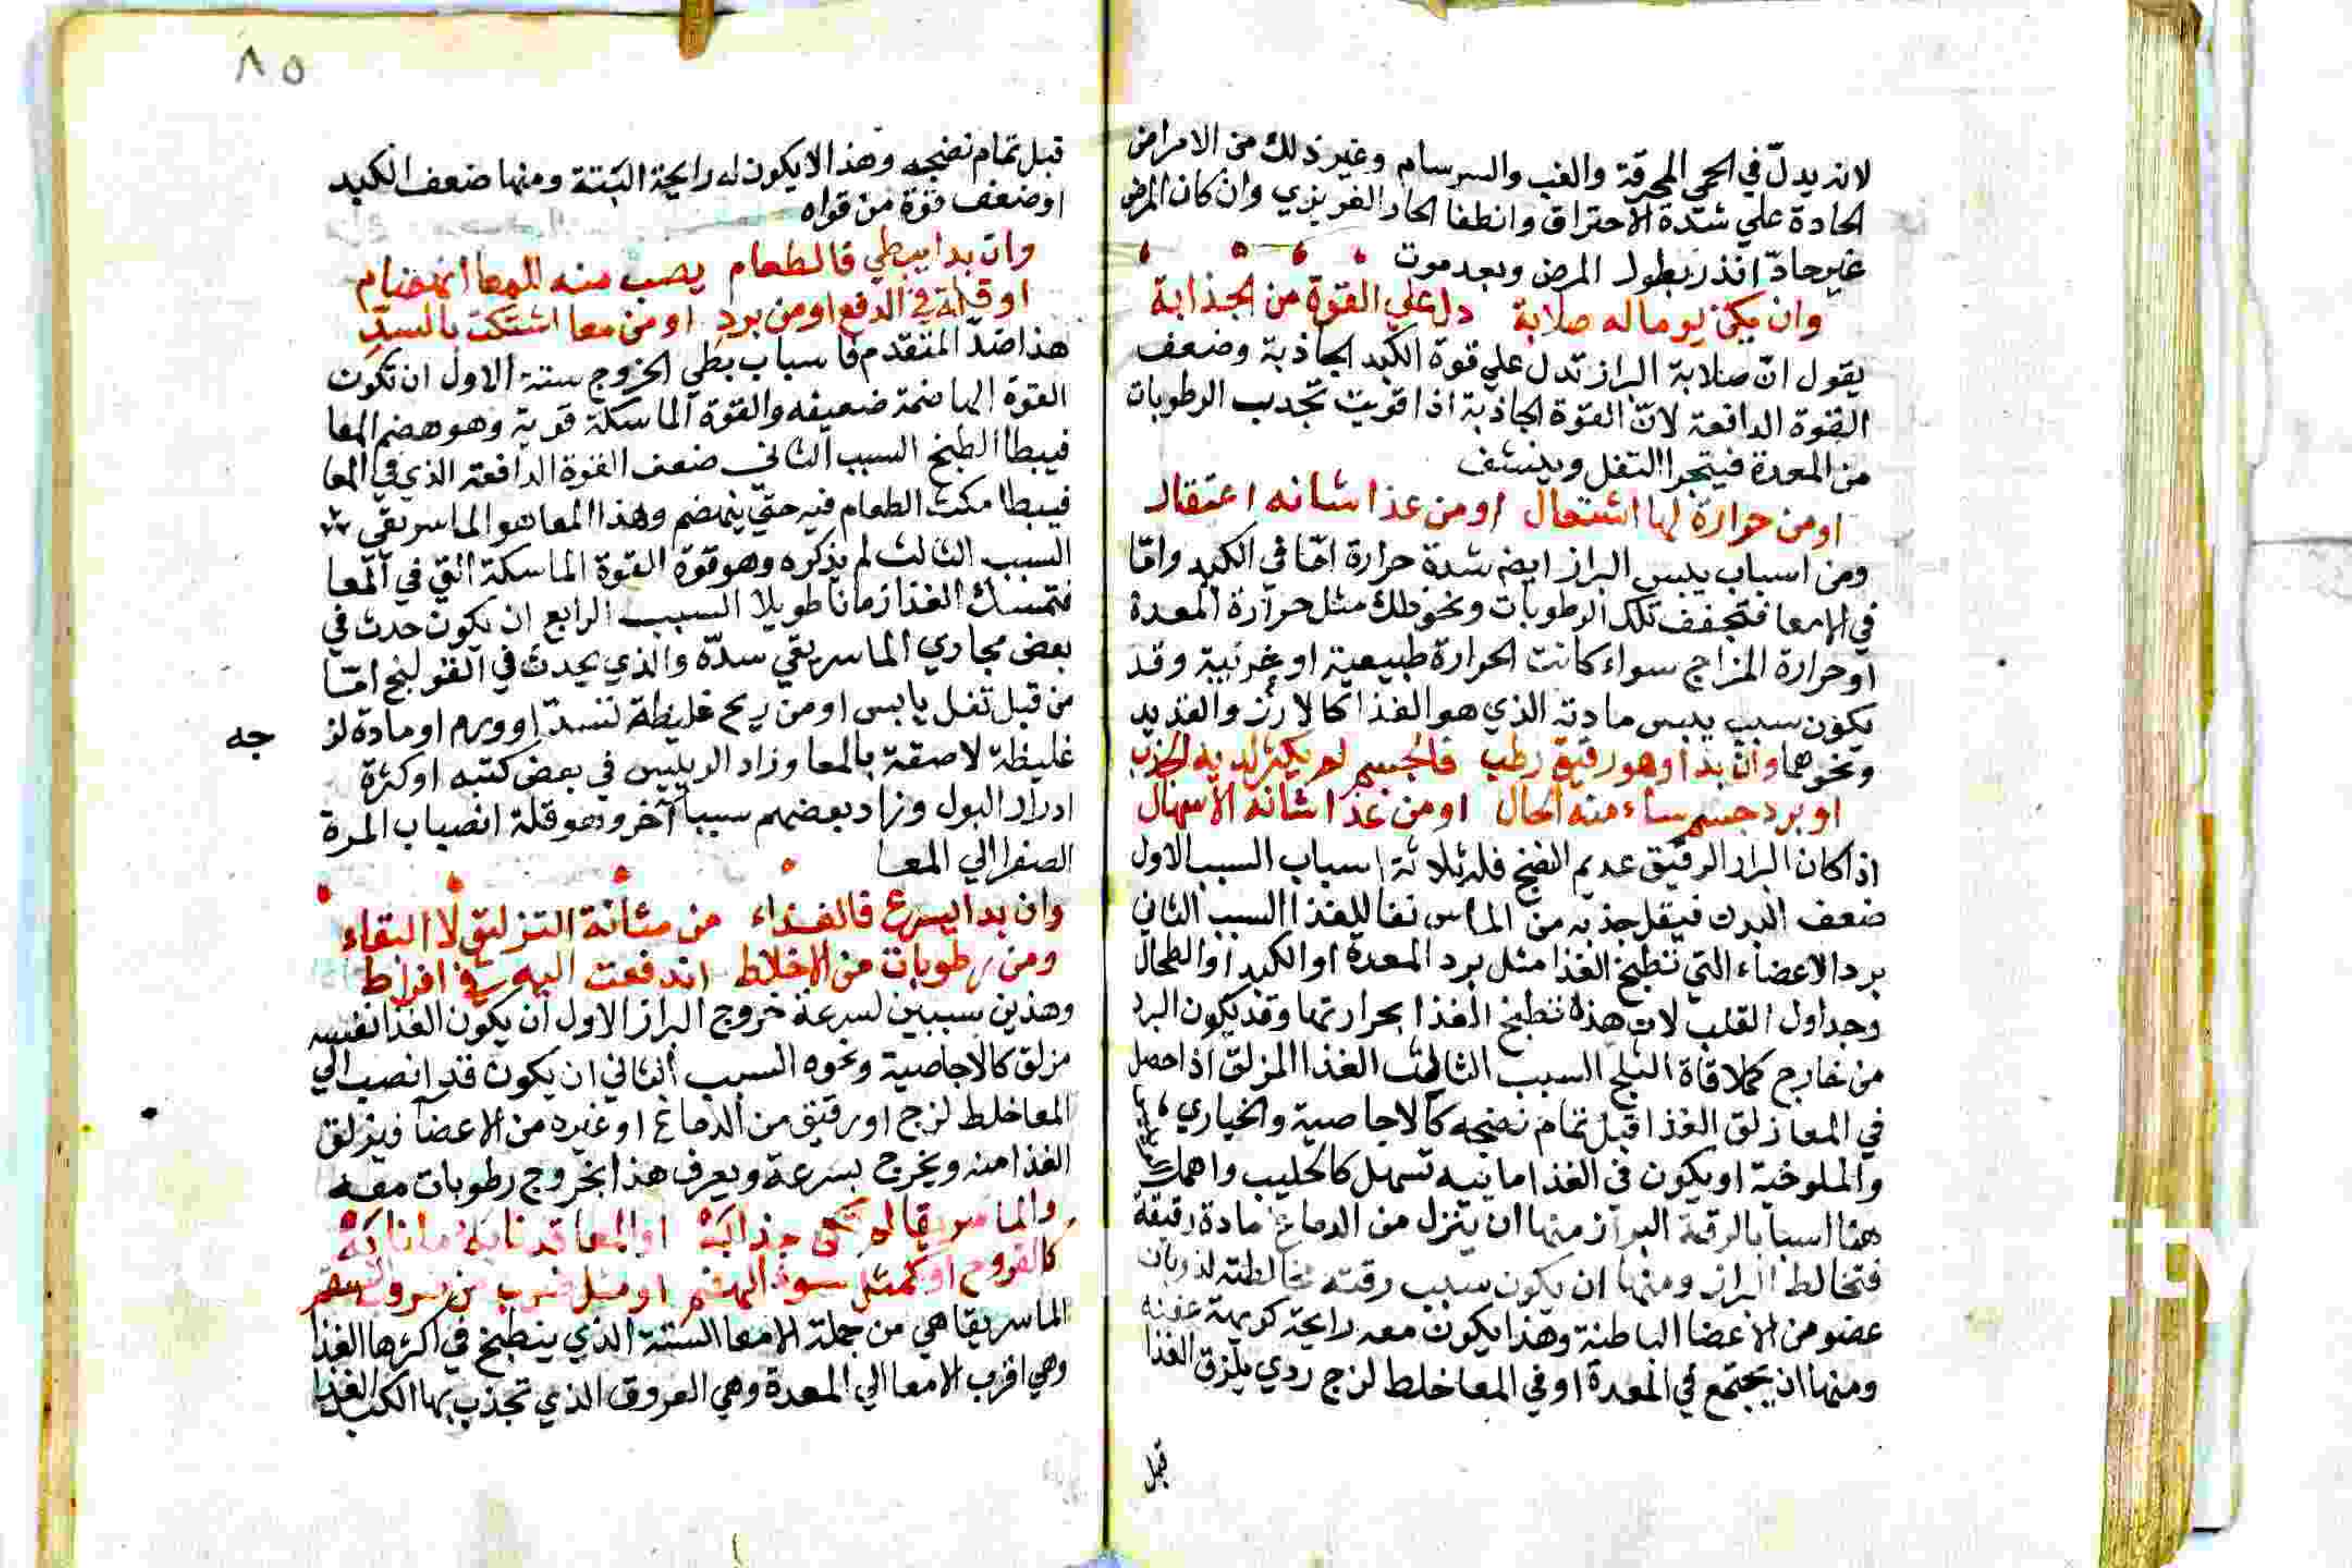 لانه يدلّ في الحمي المحرقة والغب والسرسام وغير ذلك من الامراض
الحادة علي شدّة الاحتراق وانطفا الحار الغريزي وان كان المرض
غير حادّ انذر بطول المرض وبعد موت
وان يكن يوما له صلابة دل علي القوة من الجذابة
يقول انّ صلابة البراز تدل علي قوة الكبد الجاذبة وضعف
القوة الدافعة لانّ القوة الجاذبة اذا قويت تجدب الرطوبات
من المعدة فيتحجر التفل وينشف
او من حرارة لها اشتعال او من غذا شانه اعتقال
ومن اسباب يبس البراز ايضه شدة حرارة امّا في الكبد وامّا
في الامعا فتجفف تلك الرطوبات ونحو ذلك مثل حرارة المعدة
او حرارة المزاج سواء كانت الحرارة طبيعية او غريبة وقد
يكون سبب يبس مادته الذي هو الغذا كالارز والقديد
ونحوهما وان بدا وهو رقيق رطب فالجسم لم يكثر لديه الجذب
او برد جسم ساء منه الحال او من غذا شانه الاسهال
اذا كان البراز الرقيق عديم النضج فله ثلاثة اسباب السبب الاول
ضعف البدن فيقل جذبه من الماس نقا للغذا السبب الثاني
برد الاعضاء التي تنطبخ الغذا مثل برد المعدة او الكبد او الطحال
وجداول القلب لان هذه تنطبخ الغذا بحرارتها وقد يكون البرد
من خارج كملاقاة الثلج السبب الثالث الغذا المزلق اذا حصل
في المعا زلق الغذا قبل تمام نضجه كالاجاصية والخياري
والملوخية او يكون في الغذا مايية تسهل كالحليب واهمل
هنا اسبابا لرقة البراز منها ان ينزل من الدماغ مادة رقيقة
فتخالط البراز ومنها ان يكون سبب رقته مخالطته لذوبان
عضو من الاعضا الباطنة وهذا يكون معه رايحة كريهة عفنه
ومنها ان يجتمع في المعدة او في المعا خلط لزج ردي يلزق الغذا
قبل
٨٥
قبل تمام نضجه وهذا لا يكون له رايحة البتة ومنها ضعف الكبد
او ضعف قوة من قواه
وان بدا يبطي فالطعام يصب منه للمعا انهضام
او قلة في الدفع او من برد او من معا اشتكت بالسدّ
هذا ضدّ المتقدم فاسباب بطي الخروج ستة الاول ان تكون
القوة الهاضمة ضعيفه والقوة الماسكة قوية وهو هضم المعا
فيبطا الطبخ السبب الثاني ضعف القوة الدافعة الذي في المعا
فيبطا مكث الطعام فيه حتي ينهضم وهذا المعا هو الماسريقي
السبب الثالث لم يذكره وهو قوة القوة الماسكة التي في المعا
فتمسك الغذا زمانا طويلا السبب الرابع ان يكون حدث في
بعض مجاري الماسريقي سدّة والذي يحدث في القولنج امّا
من قبل تفل يابس او من ريح غليظة تنسدّ او ورم او مادة لز
جه
غليظة لاصقة بالمعا وزاد الرييس في بعض كتبه او كثرة
ادرار البول وزاد بعضهم سببا آخر وهو قلة انصباب المرة
الصفرا الي المعا
وان بدا يسرع فالغذاء من شانه التزليق لا البقاء
ومن رطوبات من الاخلاط اندفعت اليه في افراط
وهذين سببين لسرعة خروج البراز الاول ان يكون الغذا نفسه
مزلق كالاجاصية ونحوه السبب الثاني ان يكون قد انصب الي
المعا خلط لزج او رقيق من الدماغ او غيره من الاعضا فيزلق
الغذا منه ويخرج بسرعة ويعرف هذا بخروج رطوبات معه
والماسريقا لم تكن جذابة او المعا قد نابه ما نابه
كالقروح او كمثل سوء الهضم او مثل
الماسريقا هي من جملة الامعا الستة الذي ينطبخ في اكثرها الغذا
وهي اقرب الامعا الي المعدة وهي العروق الذي تجذب بها الكبد الغذا